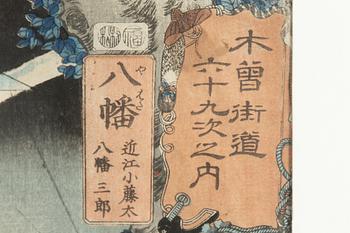 木曽街道
六十九次之内
八幡
やはた
近江小藤太
八幡三郎